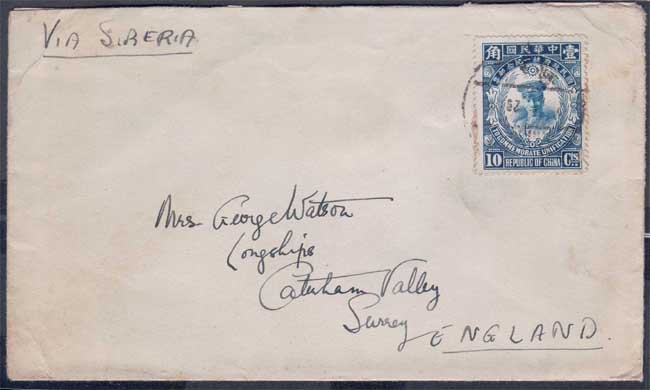 VIA SIBERIA
角 國民華中 壹
TO COMMEMORATE UNIFICATION
10 Cts.
REPUBLIC OF CHINA
29
Mrs. George Watson
Longships
Caterham Valley
Surrey
ENGLAND.